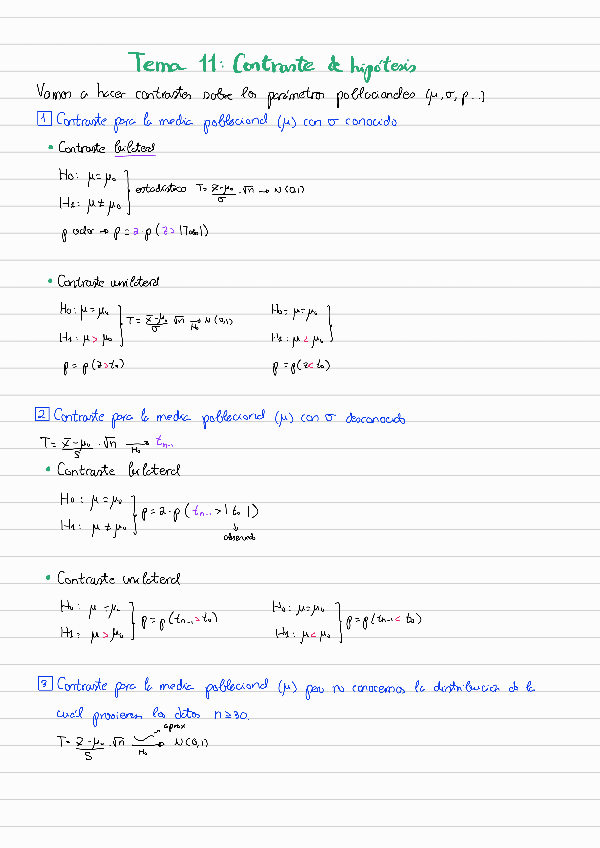 Tema 11: Contraste de hipótesis
Vamos a hacer contrastes sobre los parámetros poblacionales (μ, σ, p...)
1 Contraste para la media poblacional (μ) con σ conocido
• Contraste bilateral
H0: μ = μ0
H1: μ ≠ μ0
estadístico T = (x̄ - μ0)/σ · √n → N(0,1)
p valor → p = 2·p(z > |Tobs|)
• Contraste unilateral
H0: μ = μ0 H0: μ = μ0
T = (x̄ - μ0)/σ √n →H0 N(0,1)
H1: μ > μ0 H1: μ < μ0
p = p(z > t0) p = p(z < t0)
2 Contraste para la media poblacional (μ) con σ desconocido
T = (x̄ - μ0)/S · √n →H0 tn-1
• Contraste bilateral
H0: μ = μ0
H1: μ ≠ μ0
p = 2·p(tn-1 > |t0|)
observado
• Contraste unilateral
H0: μ = μ0 H0: μ = μ0
p = p(tn-1 > t0) p = p(tn-1 < t0)
H1: μ > μ0 H1: μ < μ0
3 Contraste para la media poblacional (μ) pero no conocemos la distribución de la
cuál provienen los datos n ≥ 30.
aprox
T = (x̄ - μ0)/S · √n →H0 N(0,1)